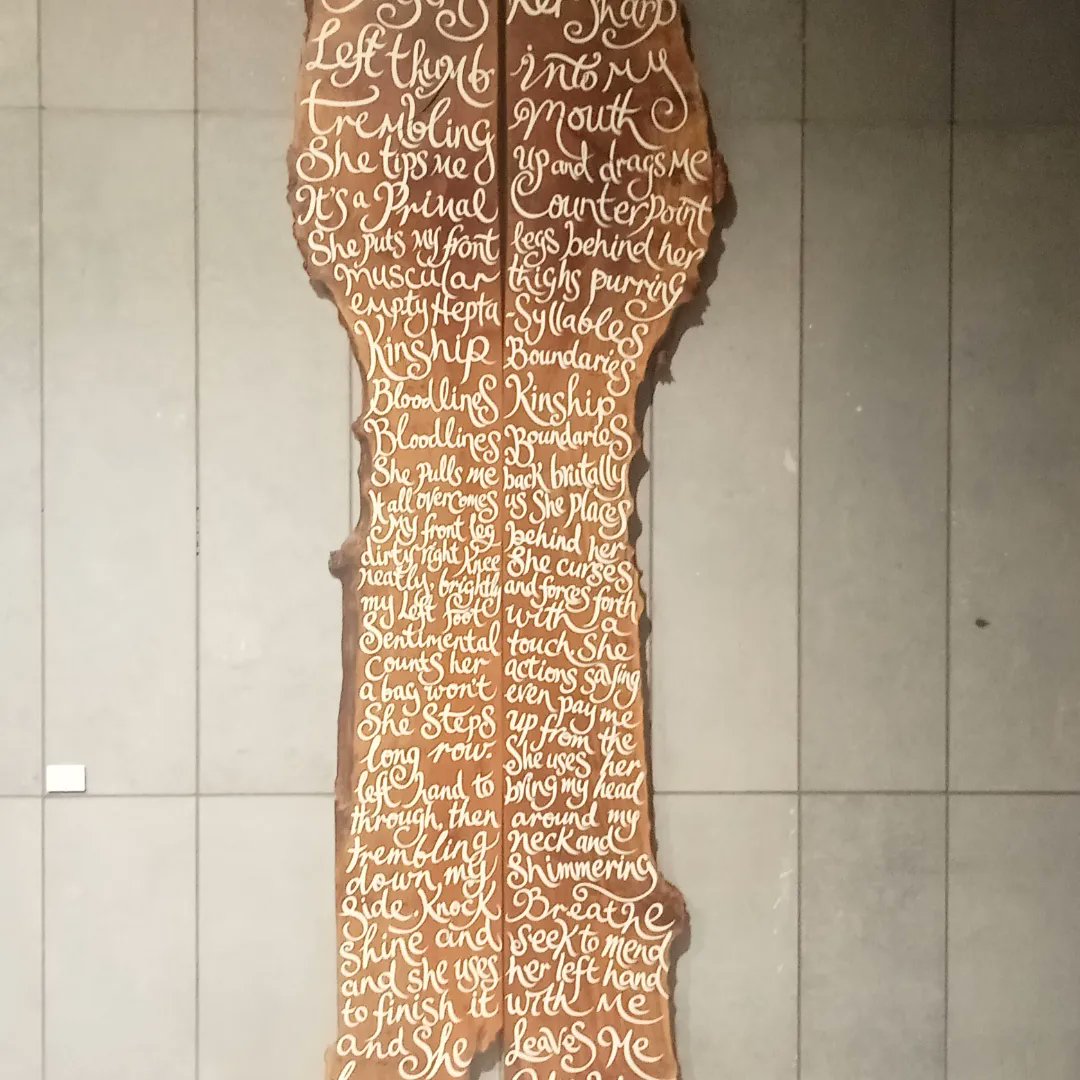 her sharp
Left thumb into my
trembling Mouth
She tips me up and drags Me
It's a Primal Counterpoint
She puts My front legs behind her
muscular thighs purring
empty Hepta-Syllables
Kinship Boundaries
Bloodlines Kinship
Bloodlines Boundaries
She pulls me back brutally
It all overcomes us She places
My front leg behind her
dirty right knee She curses
neatly, brightly and forces forth
my Left foot with a
Sentimental touch. She
counts her actions saying
a bag won't even pay me
She Steps up from the
long row. She uses her
left hand to bring my head
through, then around my
trembling neck and
down my Shimmering
side. Knock Breathe
Shine and seek to mend
and she uses her left hand
to finish it with Me
and She Leaves Me